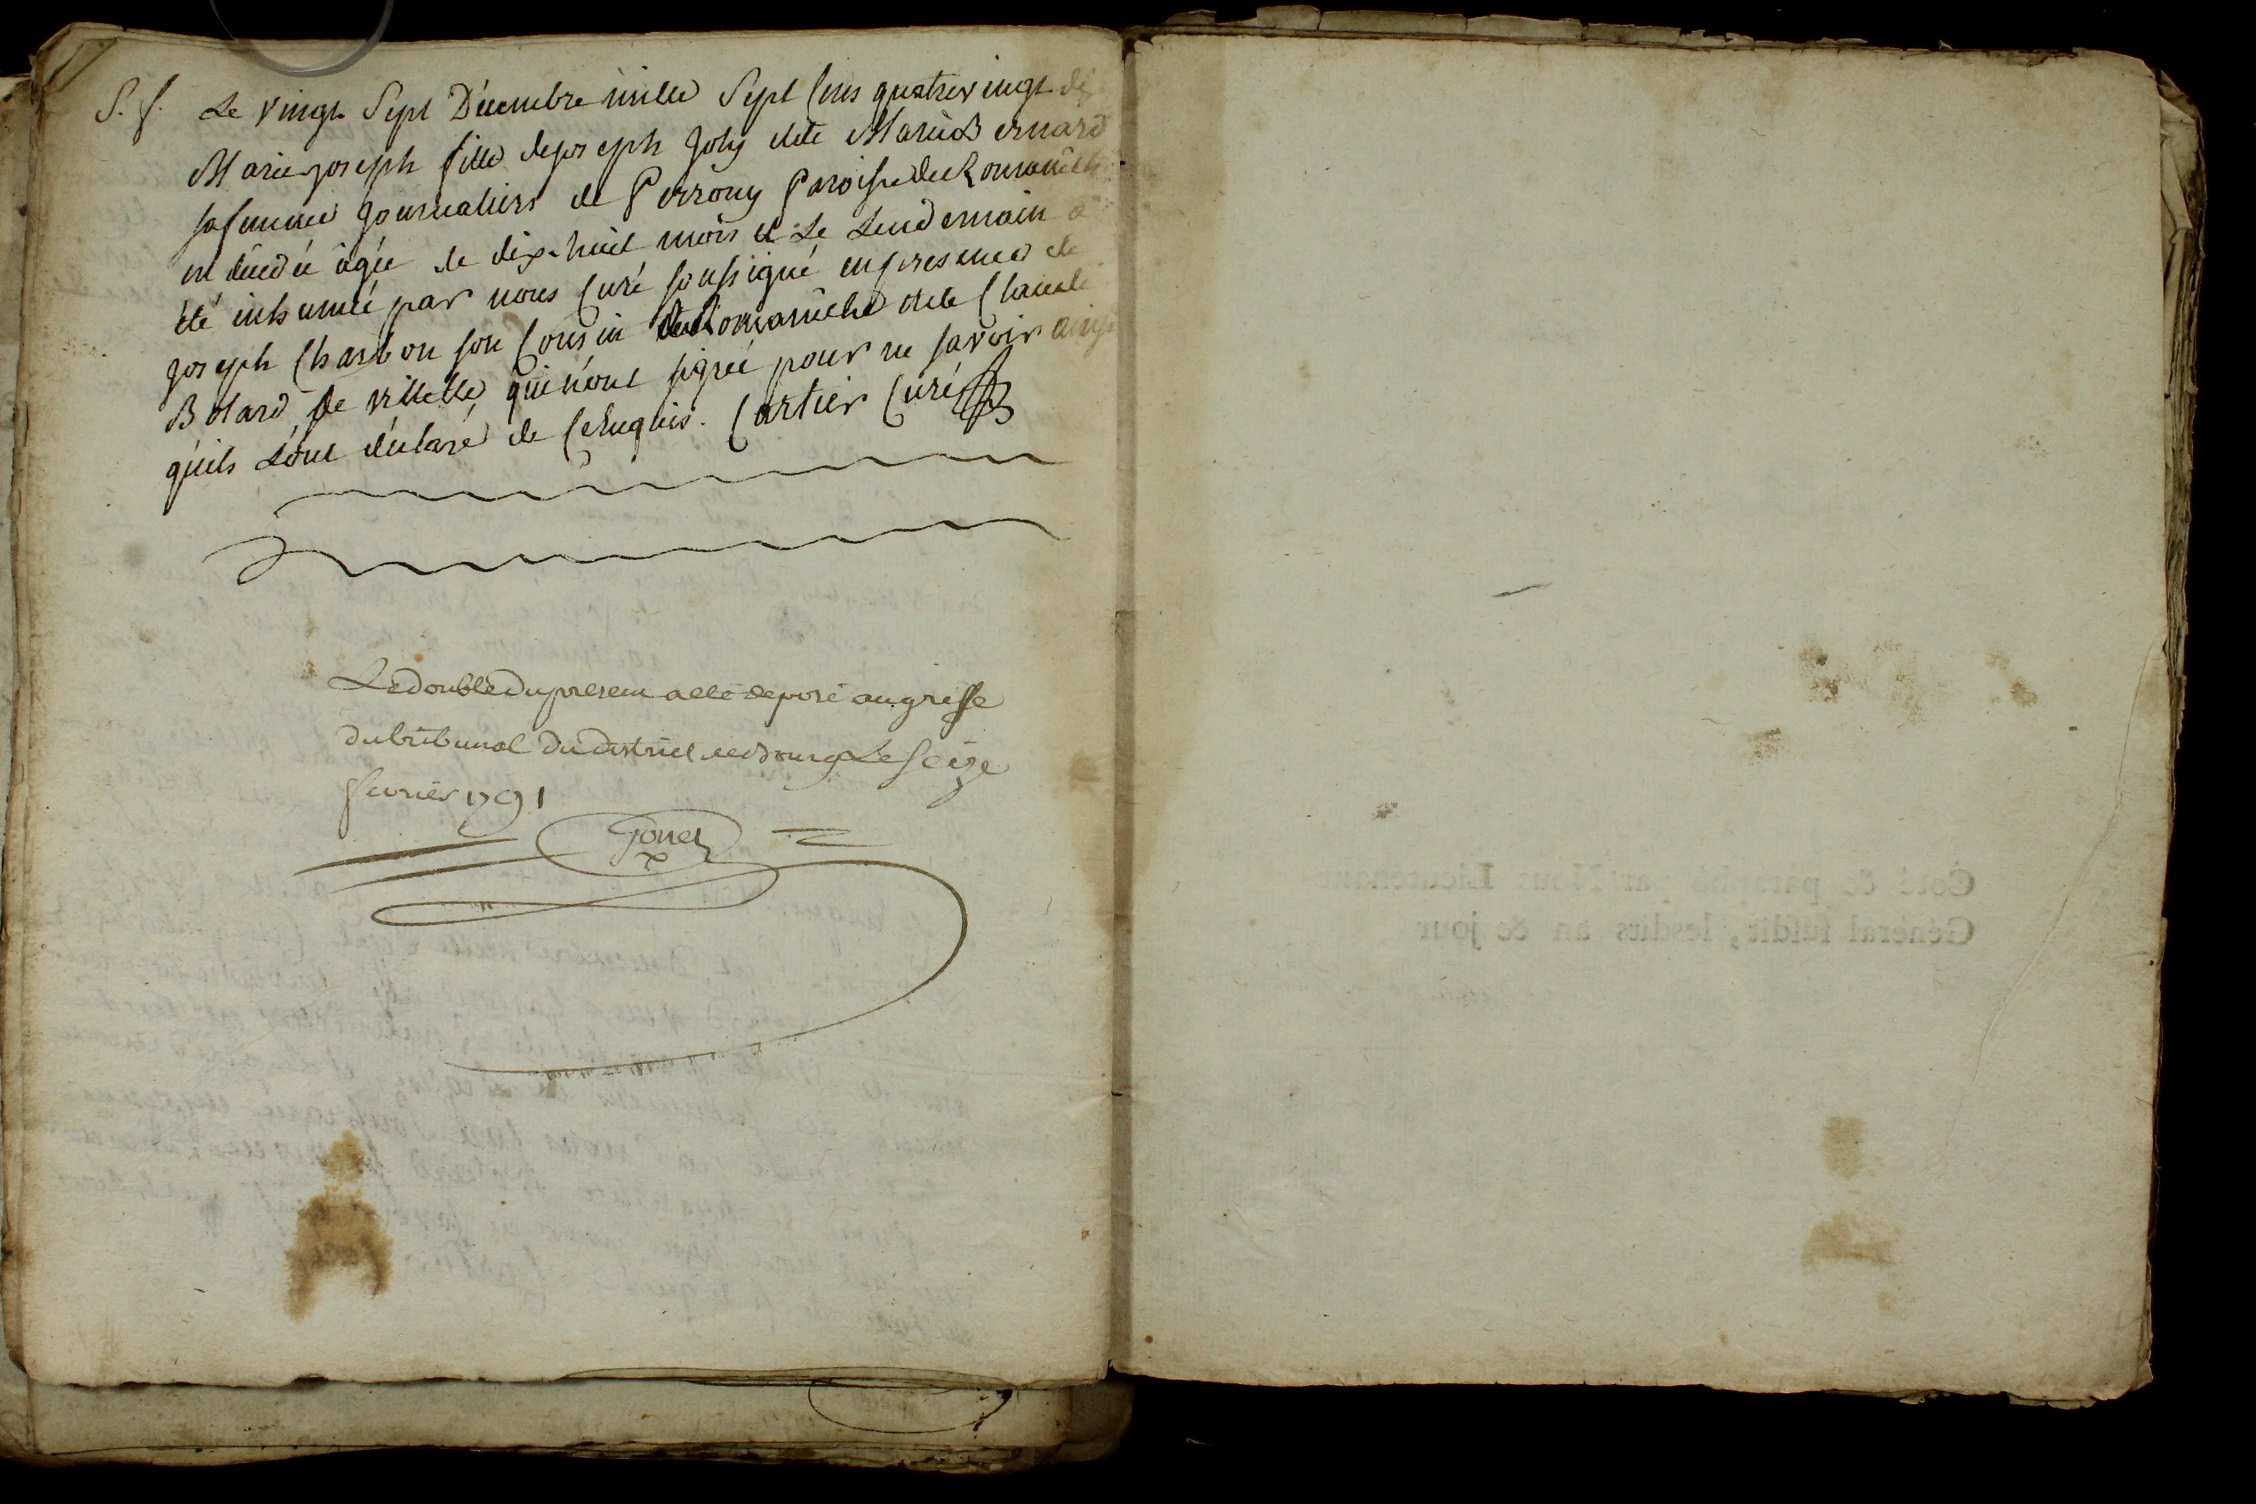 S. f. Le vingt Sept Décembre mille Sept Cens quatrevingt dix
Marie joseph fille de joseph joly et de Marie Bernard
sa femme journaliers de Perrony Paroisse de Romanèche
est décédée âgée de dix-huit mois et Le Lendemain a
été inhumée par nous Curé soussigné en presence de
joseph Charbon son Cousin de Romanèche et de Claude
Botard de villette qui n'ont signé pour ne savoir ainsi
qu'ils L'ont déclaré de Ce Enquis. Cartier Curé
Le double du present a eté deposé au greffe
du tribunal du district de Bourg Le Seize
fevrier 1791
Gonet
Coté & paraphé par Nous Lieutenant
Général susdit, lesdits an & jour